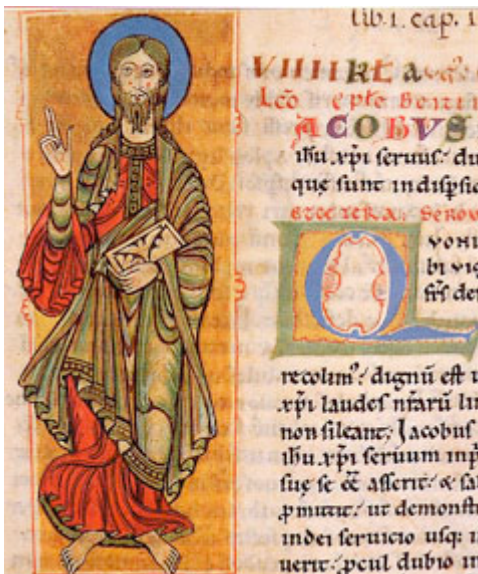 lib. 1. cap. 1
VIIII KL A
Lcō epłe
IACOBVS
ihu xpi seruus. du
quę sunt in dispsio
SERMO
QVONI
bi uig
recolim᷒. dignū est u
xpi laudes nr̄arū lin
non sileant. Jacobus
ihu xpi seruum in p
suę se ēē asserit. & sal
pmittit. ut demonstr
in dei seruicio usq; i
uerit. pcul dubio in